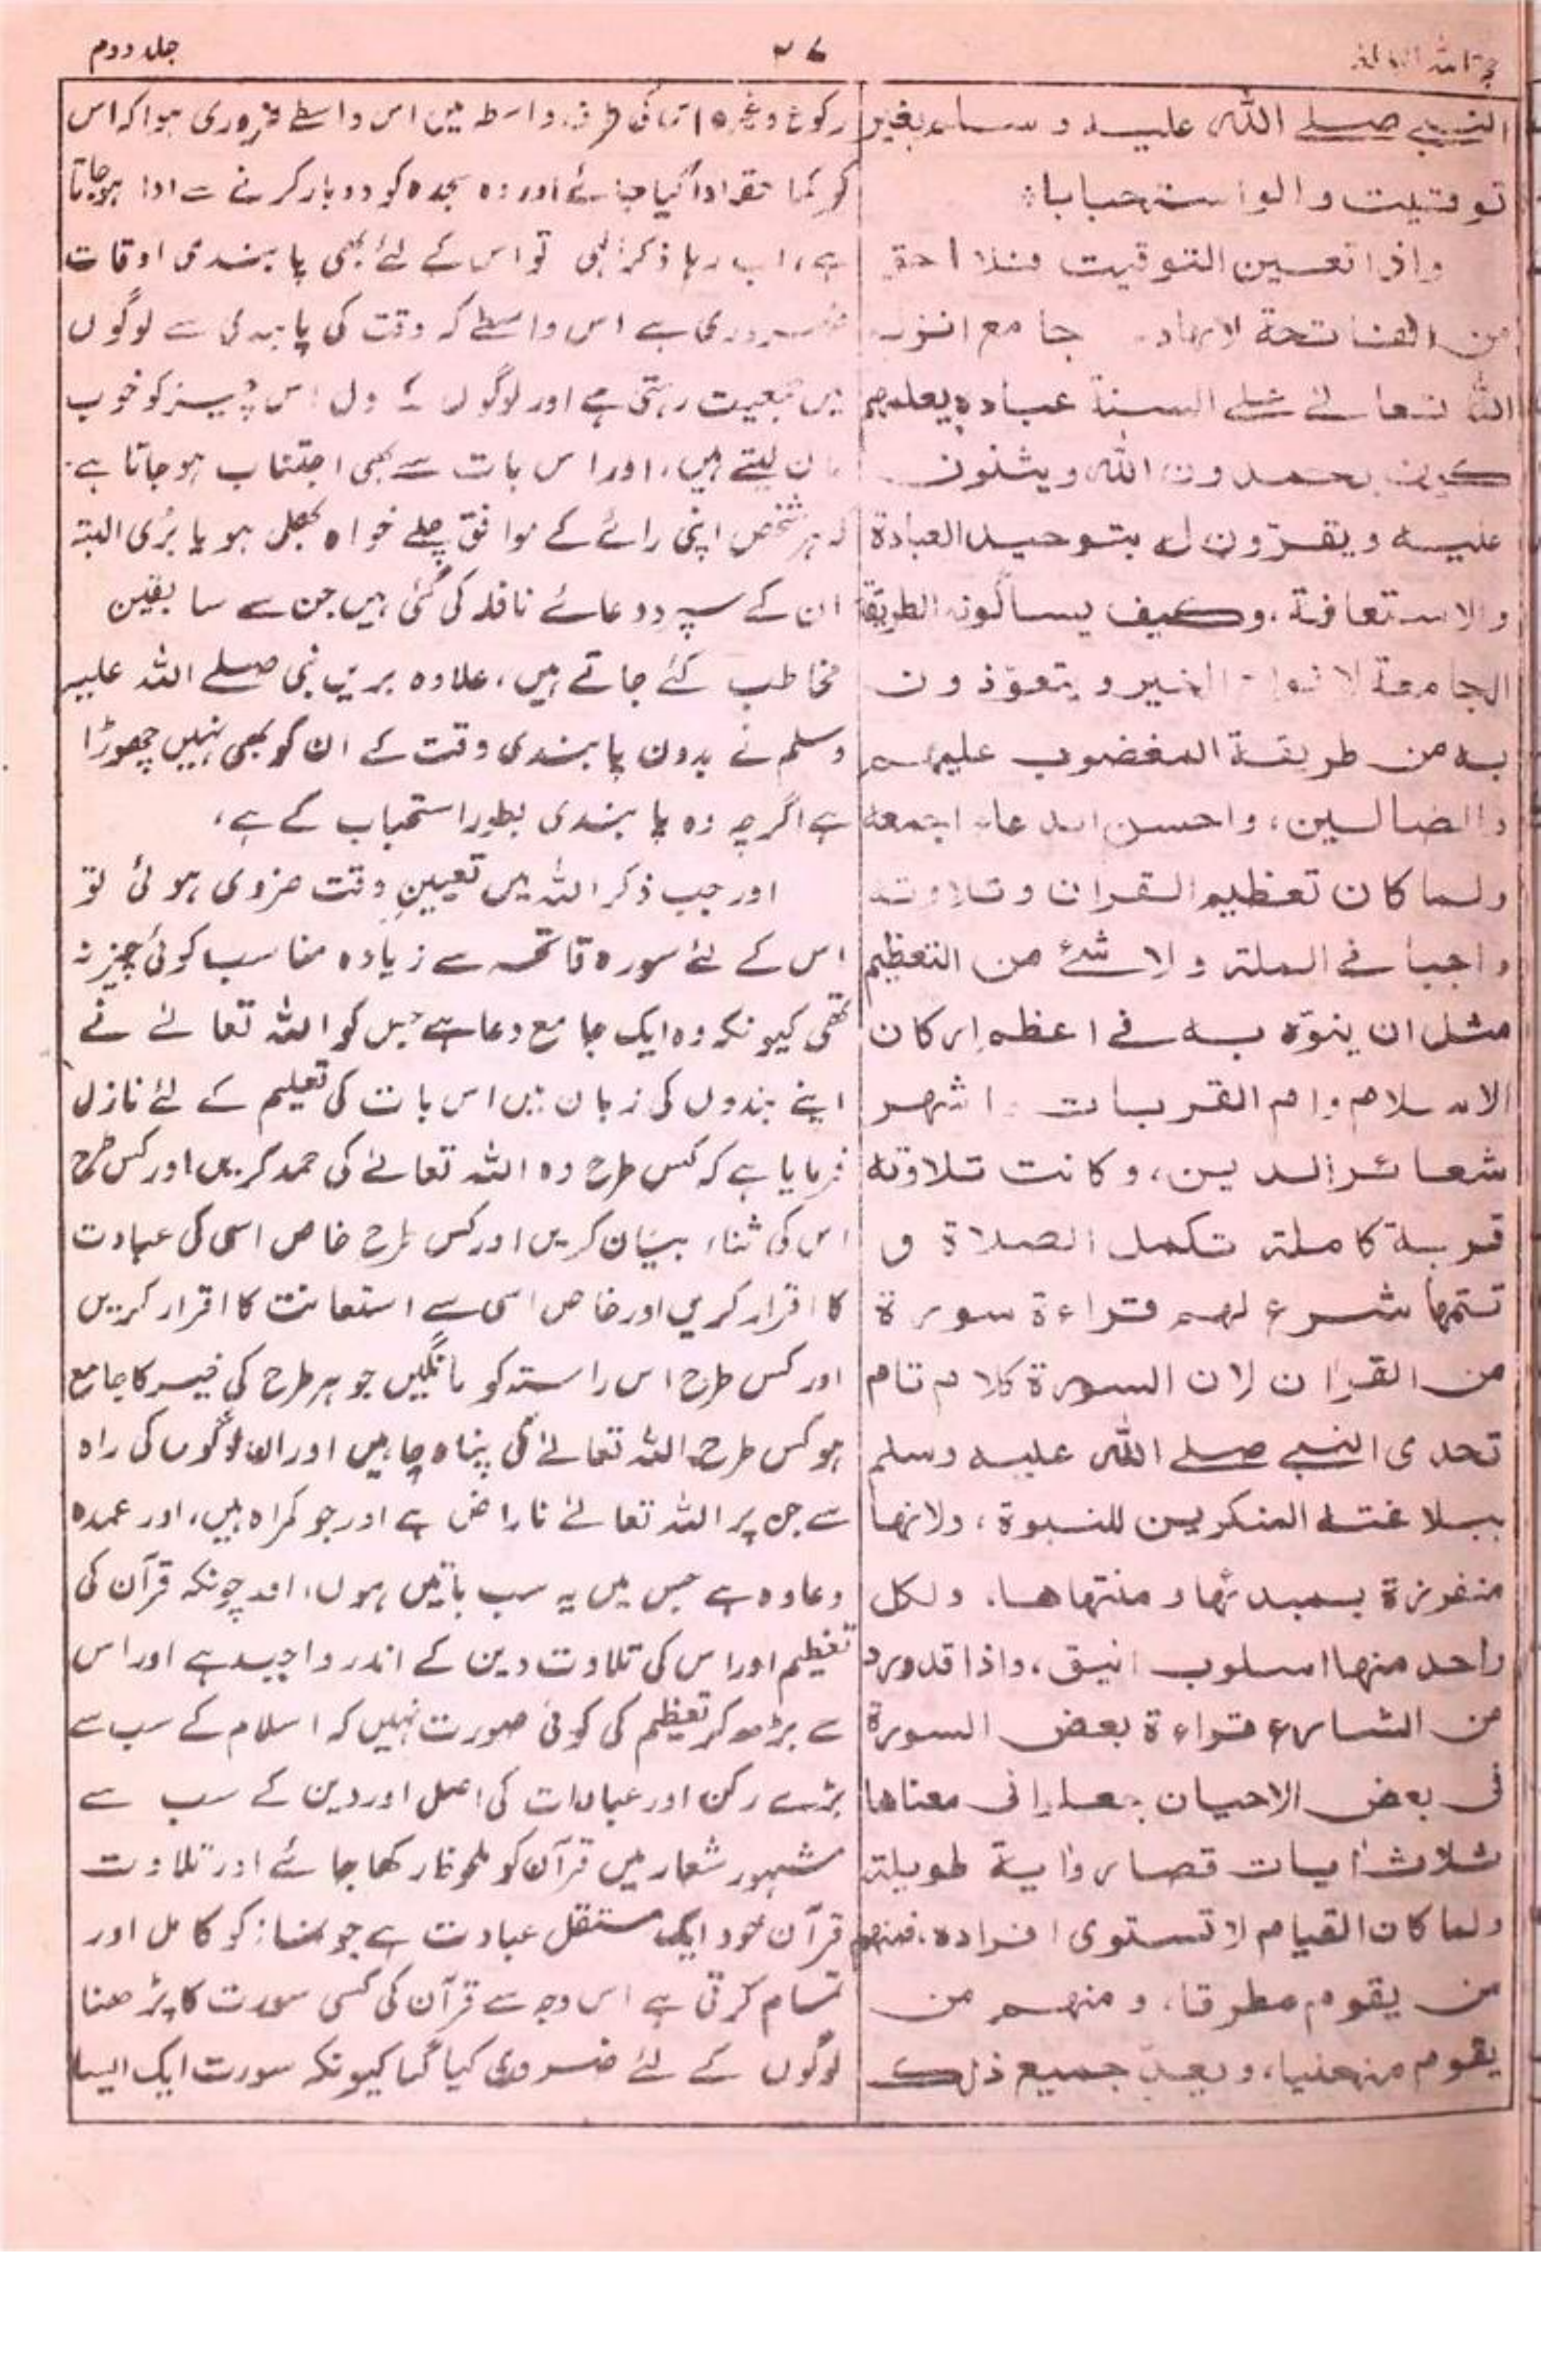 جلد دوم
النبي صلے الله عليه وسلم بغير
توقيت ولو استحبابا
واذا تعين التوقيت فلا احق
من الفاتحة لانها دعاء جامع انزله
الله تعالے علے السنة عباده يعلمهم
كيف يحمدون الله ويثنون
عليه ويقرّون له بتوحيد العبادة
والاستعانة، وكيف يسألونه الطريقة
الجامعة لانواع الخير ويتعوّذون
به من طريقة المغضوب عليهم
والضالين، واحسن الدعاء اجمعه
ولما كان تعظيم القران وتلاوته
واجبا فے الملة ولا شئ من التعظيم
مثل ان ينوّه به فے اعظم اركان
الاسلام وام القربات و اشهر
شعائر الدين، وكانت تلاوته
قربة كاملة تكمل الصلاة و
تتمها شرع لهم قراءة سورة
من القران لان السورة كلام تام
تحدى النبے صلے الله عليه وسلم
ببلاغته المنكرين للنبوة، ولانها
منفرزة بمبدئها و منتهاها، ولكل
واحد منها اسلوب انيق، واذا قد ورد
من الشارع قراءة بعض السورة
فی بعض الاحيان جعلوا فی معناها
ثلاث ايات قصار واية طويلة
ولما كان القيام لا تستوى افراده، فمنهم
من يقوم مطرقا، ومنهم من
يقوم منحنيا، ويعدّ جميع ذلك
رکوع وغیرہ اس واسطے ضروری ہوا کہ اس
کو کیا جائے اور وہ سجدہ کو دو بار کرنے سے ادا ہو جاتا
ہے، اب رہا ذکر الٰہی تو اس کے لئے بھی پابندی اوقات
ضروری ہے اس واسطے کہ وقت کی پابندی سے لوگوں
میں جمعیت رہتی ہے اور لوگوں کے دل اس چیز کو خوب
مان لیتے ہیں، اور اس بات سے بھی اجتناب ہو جاتا ہے
کہ ہر شخص اپنی رائے کے موافق چلے خواہ بھلی ہو یا بُری البتہ
ان کے سپرد دعائے نافلہ کی گئی ہیں جن سے سابقین
مخاطب کئے جاتے ہیں، علاوہ بریں نبی صلے اللہ علیہ
وسلم نے بدون پابندی وقت کے ان کو بھی نہیں چھوڑا
ہے اگرچہ وہ پابندی بطور استحباب کے ہے،
اور جب ذکر اللہ میں تعیینِ وقت ضروی ہوئی تو
اس کے لئے سورہ فاتحہ سے زیادہ مناسب کوئی چیز نہ
تھی کیونکہ وہ ایک جامع دعا ہے جس کو اللہ تعالےٰ نے
اپنے بندوں کی زبان میں اس بات کی تعلیم کے لئے نازل
فرمایا ہے کہ کس طرح وہ اللہ تعالےٰ کی حمد کریں اور کس طرح
اس کی ثناء بیان کریں اور کس طرح خاص اسی کی عبادت
کا اقرار کریں اور خاص اسی سے استعانت کا اقرار کریں
اور کس طرح اس راستہ کو مانگیں جو ہر طرح کی خیر کا جامع
ہو کس طرح اللہ تعالےٰ کی پناہ چاہیں اور ان لوگوں کی راہ
سے جن پر اللہ تعالےٰ ناراض ہے اور جو گمراہ ہیں، اور عمدہ
دعا وہ ہے جس میں یہ سب باتیں ہوں، اور چونکہ قرآن کی
تعظیم اور اس کی تلاوت دین کے اندر واجب ہے اور اس
سے بڑھ کر تعظیم کی کوئی صورت نہیں کہ اسلام کے سب سے
بڑے رکن اور عبادات کی اصل اور دین کے سب سے
مشہور شعار میں قرآن کو ملحوظ رکھا جائے اور تلاوت
قرآن خود ایک مستقل عبادت ہے جو نماز کو کامل اور
تمام کرتی ہے اس وجہ سے قرآن کی کسی سورت کا پڑھنا
لوگوں کے لئے ضروری کیا گیا کیونکہ سورت ایک ایسا